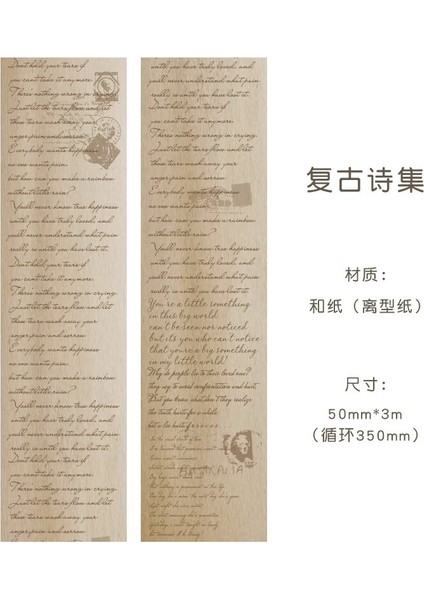 Don't hold your tears if
you can't take it anymore.
There's nothing wrong in crying.
Just let the tears flow and let
these tears wash away your
anger pain and sorrow.
Everybody wants happiness
no one wants pain.
but how can you make a rainbow
without little rain?
You'll never know true happiness
until you have truly loved, and
you'll never understand what pain
really is until you have lost it.
Don't hold your tears if
you can't take it anymore.
There's nothing wrong in crying.
Just let the tears flow and let
these tears wash away your
anger pain and sorrow.
Everybody wants happiness
no one wants pain.
but how can you make a rainbow
without little rain?
You'll never know true happiness
until you have truly loved, and
you'll never understand what pain
really is until you have lost it.
Don't hold your tears if
you can't take it anymore.
There's nothing wrong in crying.
Just let the tears flow and let
these tears wash away your
anger pain and sorrow
until you have truly loved, and
you'll never understand what pain
really is until you have lost it.
Don't hold your tears if
you can't take it anymore.
There's nothing wrong in crying.
Just let the tears flow and let
these tears wash away your
anger pain and sorrow.
Everybody wants happiness
no one wants pain.
but how can you make a rainbow
without little rain?
You'll never know true happiness
until you have truly loved, and
you'll never understand what pain
really is until you have lost it.
You're a little something
in this big world
can't be seen nor noticed
but it's you who can't notice
that you're a big something
in my little world!
Why do people lie to their loved ones?
复古诗集
材质：
和纸（离型纸）
尺寸：
50mm*3m
（循环350mm）